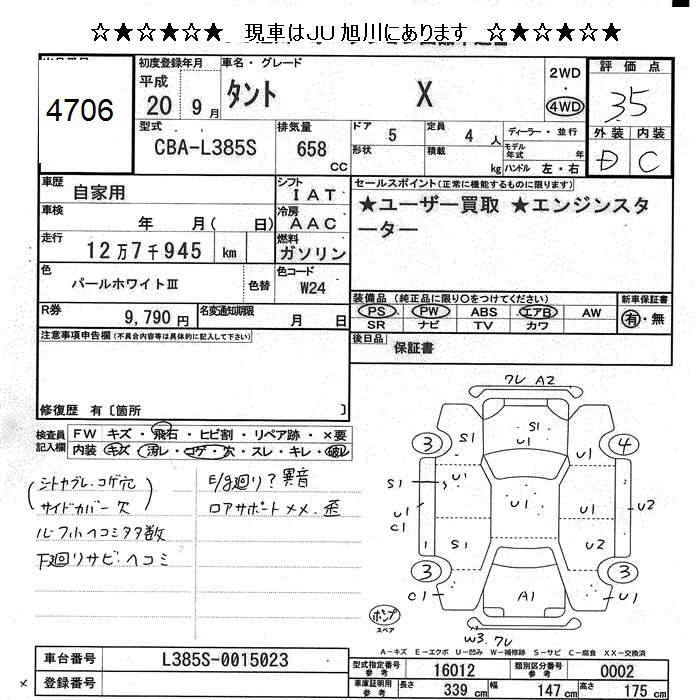 ☆★☆★☆★ 現車はJU旭川にあります ☆★☆★☆★
4706
初度登録年月
平成
20 9月
車名・グレード
タント X
2WD
・
4WD
評価点
3.5
外装 内装
D C
型式
CBA-L385S
排気量
658 CC
ドア 5
定員 4 人
形状
積載 kg
ディーラー・並行
モデル年式 年
ハンドル 左・右
車歴
自家用
シフト
IAT
セールスポイント(正常に機能するものに限ります)
★ユーザー買取 ★エンジンスターター
車検
年 月( 日)
冷房
AAC
走行
12万7千945 km
燃料
ガソリン
色
パールホワイトⅢ
色替
色コード
W24
装備品(純正品に限り○をつけてください)
PS PW ABS エアB AW
SR ナビ TV カワ
新車保証書
有・無
R券
9,790円
名変通知期限
月 日
後日品
保証書
注意事項申告欄(不具合内容等は具体的に記入して下さい)
修復歴 有〔箇所 〕
検査員記入欄
FW キズ・飛石・ヒビ割・リペア跡・×要
内装 キズ・汚レ・コゲ・穴・スレ・キレ・破レ
シートカブレ.コゲ穴
サイドカバー欠
ルーフ小ヘコミタタ数
下廻リサビ.ヘコミ
E/g廻リ?異音
ロアサポートメメ.歪
ワレ A2
3 S1 S1 U1 U1 4
S1 U1 U1 U1
U1 C1 U2
1 S1 U2
3 3
C1 A1 U1
W3.ワレ
ポンプ
スペア
A-キズ E-エクボ U-凹み W-補修跡 S-サビ C-腐食 XX-交換済
車台番号 L385S-0015023
登録番号
型式指定番号 参考 16012
類別区分番号 参考 0002
車庫証明用 参考 長さ 339 cm 幅 147 cm 高さ 175 cm